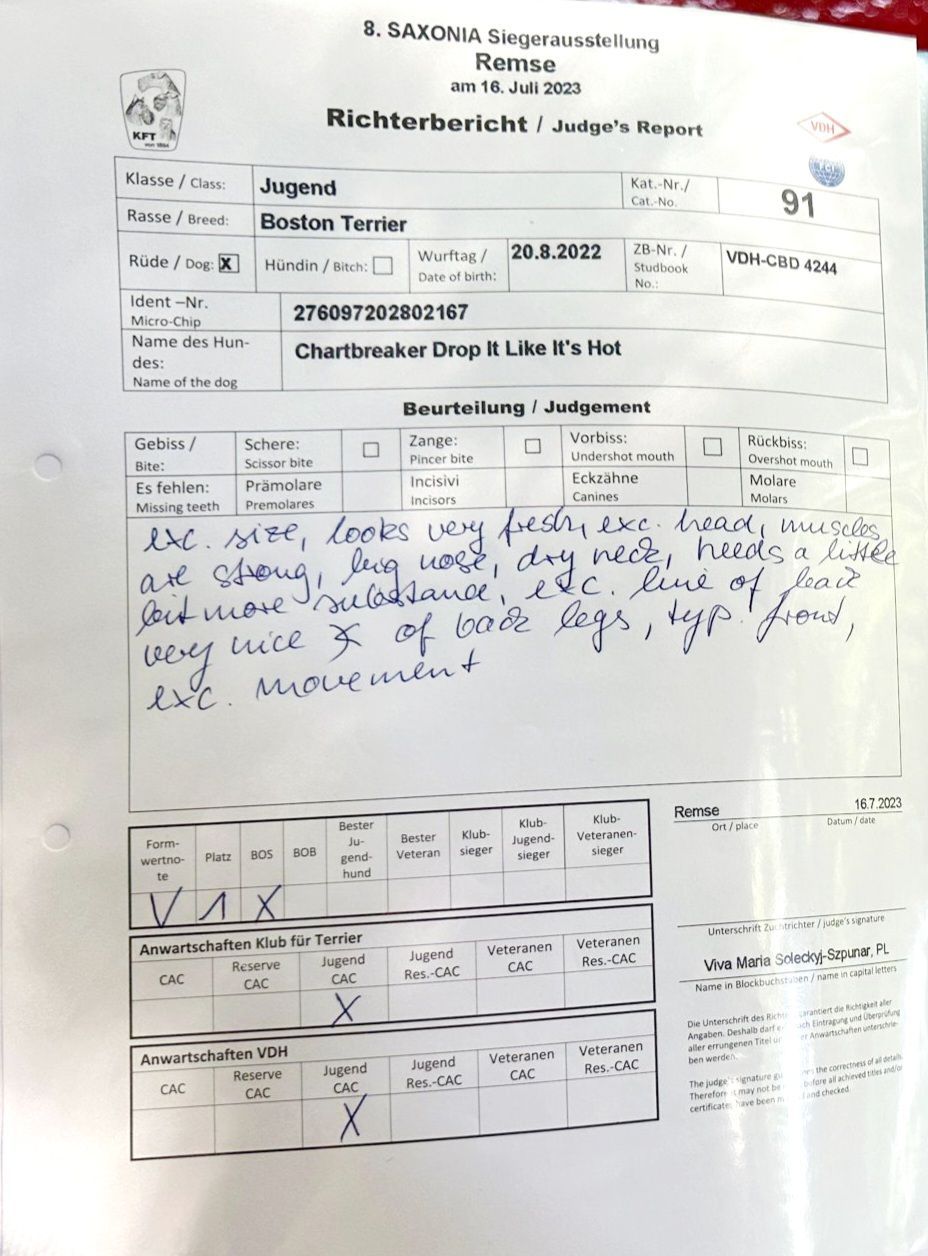 8. SAXONIA Siegerausstellung
Remse
am 16. Juli 2023
Richterbericht / Judge's Report
KFT
von 1894
VDH
FCI
Klasse / Class: Jugend Kat.-Nr./ Cat.-No. 91
Rasse / Breed: Boston Terrier
Rüde / Dog: X Hündin / Bitch: Wurftag / Date of birth: 20.8.2022 ZB-Nr. / Studbook No.: VDH-CBD 4244
Ident –Nr. Micro-Chip 276097202802167
Name des Hun-
des: Chartbreaker Drop It Like It's Hot
Name of the dog
Beurteilung / Judgement
Gebiss / Bite: Schere: Scissor bite Zange: Pincer bite Vorbiss: Undershot mouth Rückbiss: Overshot mouth
Es fehlen: Missing teeth Prämolare Premolares Incisivi Incisors Eckzähne Canines Molare Molars
exc. size, looks very fresh, exc. head, muscles
are strong, big nose, dry neck, needs a little
bit more substance, exc. line of back
very nice of back legs, typ. front,
exc. movement
Form-
wertno-
te Platz BOS BOB Bester
Ju-
gend-
hund Bester
Veteran Klub-
sieger Klub-
Jugend-
sieger Klub-
Veteranen-
sieger
V 1 X
Anwartschaften Klub für Terrier
CAC Reserve CAC Jugend CAC Jugend Res.-CAC Veteranen CAC Veteranen Res.-CAC
X
Anwartschaften VDH
CAC Reserve CAC Jugend CAC Jugend Res.-CAC Veteranen CAC Veteranen Res.-CAC
X
Remse 16.7.2023
Ort / place Datum / date
Unterschrift Zuchtrichter / judge's signature
Viva Maria Soleckyj-Szpunar, PL
Name in Blockbuchstaben / name in capital letters
Die Unterschrift des garantiert die Richtigkeit aller
Angaben. Deshalb darf Eintragung und Überprüfung
aller errungenen Titel Anwartschaften unterschrie-
ben werden.
The judge's signature the correctness of all details.
Therefore it may not be before all achieved titles and/or
certificates have been and checked.